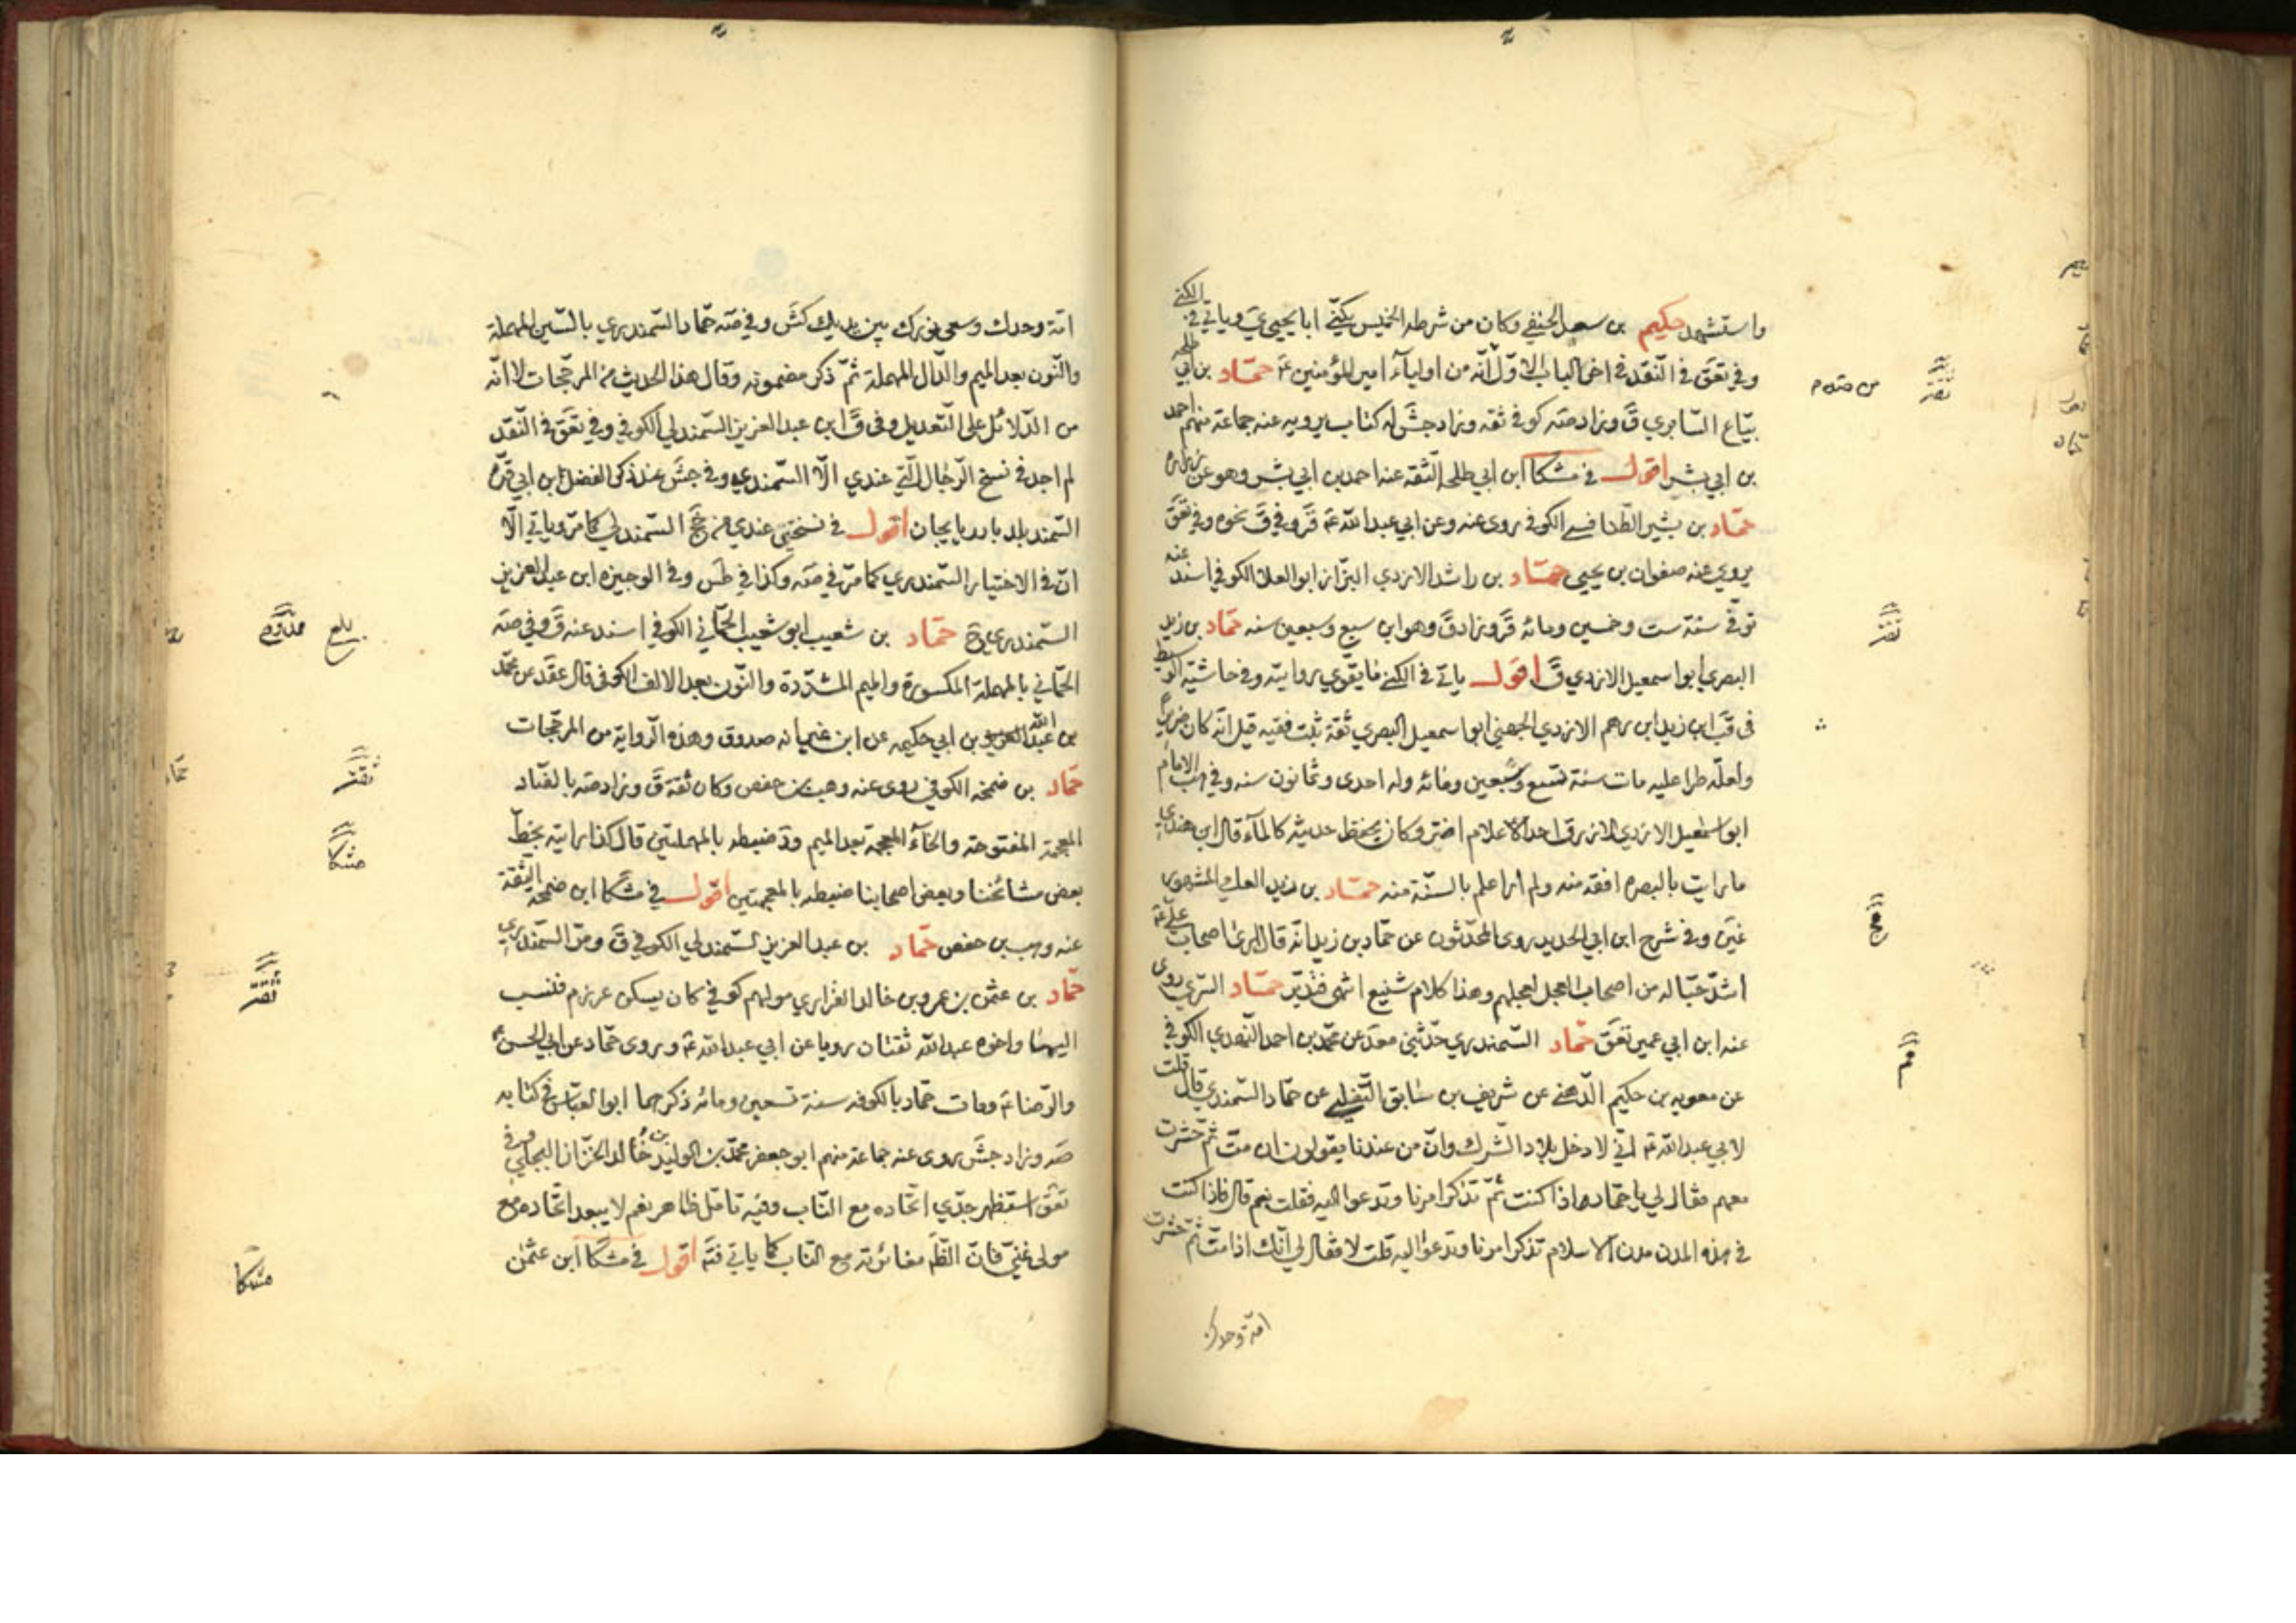 واستشهد حكيم بن سعد الحنفي وكان من شرطة الخميس يكنى ابا يحيى ي وياتي في الكنى
وفي تعق في النقد في اخر الباب الاول انه من اولياء امير المؤمنين ع حماد بن ابي طلحة
بياع السابري ق وزاد صه كوفي ثقه وزاد جش له كتاب يرويه عنه جماعة منهم احمد
بن ابي بشر اقول في مشكا ابن ابي طلحة الثقه عنه احمد بن ابي بشر وهو عن زرارة
حماد بن بشير الطنافسي الكوفي روى عنه وعن ابي عبد الله ع قر وفي ق نحوه وفي تعق
يروي عنه صفوان بن يحيى حماد بن راشد الازدي البزاز ابو العلاء الكوفي اسند عنه
توفي سنة ست وخمسين ومائه قر وزاد ق وهو ابن سبع وسبعين سنه حماد بن زيد
البصري ابو اسمعيل الازدي ق اقول ياتي في الكنى ما يقوي روايته وفي حاشية
في قب ابن زيد ابن درهم الازدي الجهضمي ابو اسمعيل البصري ثقة ثبت فقيه قيل انه كان ضريرا
ولعله طرا عليه مات سنة تسع وسبعين ومائه وله احدى وثمانون سنه وفي هب الامام
ابو اسمعيل الازدي الازرق احد الاعلام اضر وكان يحفظ حديثه كالماء قال ابن مهدي
ما رايت بالبصره افقه منه ولم ار اعلم بالسنة منه حماد بن زيد العلي المشهور
غيره وفي شرح ابن ابي الحديد روى المحدثون عن حماد بن زيد انه قال ارى اصحاب علي ع
اشد حبا له من اصحاب العجل لعجلهم وهذا كلام شنيع انتهى فتدبر حماد السري روى
عنه ابن ابي عمير تعق حماد السمندري حدثني محمد عن محمد بن احمد النهدي الكوفي
عن معويه بن حكيم الدهني عن شريف بن سابق التفليسي عن حماد السمندري قال قلت
لابي عبد الله ع اني لادخل بلاد الشرك وان من عندنا يقولون ان مت ثم حشرت
معهم فقال لي يا حماد اذا كنت ثم تذكر امرنا وتدعوا اليه فقلت نعم قال فاذا كنت
في هذه المدن مدن الاسلام تذكر امرنا وتدعوا اليه قلت لا فقال لي انك اذا مت ثم حشرت
امة وحدك
امة وحدك وسعى نورك بين يديك كش وفي صه حماد السمندري بالسين المهملة
والنون بعد الميم والدال المهملة ثم ذكر مضمونه وقال هذا الحديث من المرجحات لا انه
من الدلائل على التعديل وفي ق ابن عبد العزيز السمندلي الكوفي وفي تعق في النقد
لم اجد في نسخ الرجال التي عندي الا السمندي وفي جش عند ذكر الفضل بن ابي قره
السمند بلد باذربايجان اقول في نسختي عندي من جخ السمندلي كما مر وياتي الا
ان في الاختيار السمندري كما مر في صه وكذا في طس وفي الوجيزه ابن عبد العزيز
السمندري ح حماد بن شعيب ابو شعيب الحماني الكوفي اسند عنه ق وفي صه
الحماني بالمهملة المكسورة والميم المشددة والنون بعد الالف الكوفي قال عقد عن محمد
بن عبد الله بن ابي حكيمه عن ابن نمير انه صدوق وهذه الرواية من المرجحات
حماد بن ضمخة الكوفي روى عنه وهيب بن حفص وكان ثقة ق وزاد صه بالضاد
المعجمة المفتوحة والخاء المعجمة بعد الميم وقد ضبطه بالمهملتين قال كذا رايته بخط
بعض مشائخنا وبعض اصحابنا ضبطه بالمعجمتين اقول في مشكا ابن ضمخة الثقة
عنه وهيب بن حفص حماد بن عبد العزيز السمندلي الكوفي ق ومر السمندري
حماد بن عثمن بن عمرو بن خالد الفزاري مولاهم كوفي كان يسكن عرزم فنسب
اليها واخوه عبد الله ثقتان رويا عن ابي عبد الله ع وروى حماد عن ابي الحسن
والرضا ع ومات حماد بالكوفه سنة تسعين ومائه ذكرهما ابو العباس في كتابه
صه وزاد جش روى عنه جماعة منهم ابو جعفر محمد بن الوليد بن خالد الخزاز البجلي وفي
تعق استظهر جدي اتحاده مع الناب وفيه تامل ظاهر نعم لا يبعد اتحاده مع
مولى غني فان الظ مغايرته مع الناب كما ياتي فتم اقول في مشكا ابن عثمن
مشكا
مشكا